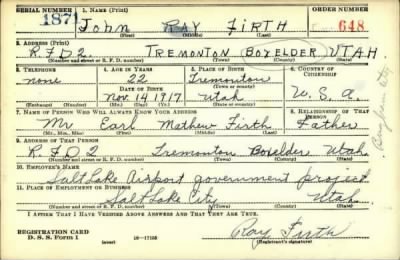 SERIAL NUMBER 1. NAME (Print) ORDER NUMBER
1871 John RAY FIRTH 648
2. ADDRESS (Print)
R.F.D 2. TREMONTON BOXELDER UTAH
(Number and street or R. F. D. number) (Town) (County) (State)
3. TELEPHONE 4. AGE IN YEARS 5. PLACE OF BIRTH 6. COUNTRY OF CITIZENSHIP
none 22 Tremonton
DATE OF BIRTH (Town or county)
Nov 14 1917 Utah U. S. A.
(Exchange) (Number) (Mo.) (Day) (Yr.) (State or country)
7. NAME OF PERSON WHO WILL ALWAYS KNOW YOUR ADDRESS 8. RELATIONSHIP OF THAT PERSON
Mr Earl Mathew Firth Father
(Mr., Mrs., Miss) (First) (Middle) (Last)
9. ADDRESS OF THAT PERSON
R.F.D 2 Tremonton Boxelder Utah
(Number and street or R. F. D. number) (Town) (County) (State)
10. EMPLOYER'S NAME
Salt Lake Airport government project
11. PLACE OF EMPLOYMENT OR BUSINESS
Salt Lake City Utah
(Number and street or R. F. D. number) (Town) (County) (State)
I AFFIRM THAT I HAVE VERIFIED ABOVE ANSWERS AND THAT THEY ARE TRUE.
REGISTRATION CARD
D. S. S. Form 1 (over) 16—17105
Ray Firth
(Registrant's signature)